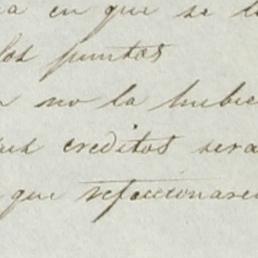 en que se
los puntos
no la hubie
sus creditos sera
que refaccionare